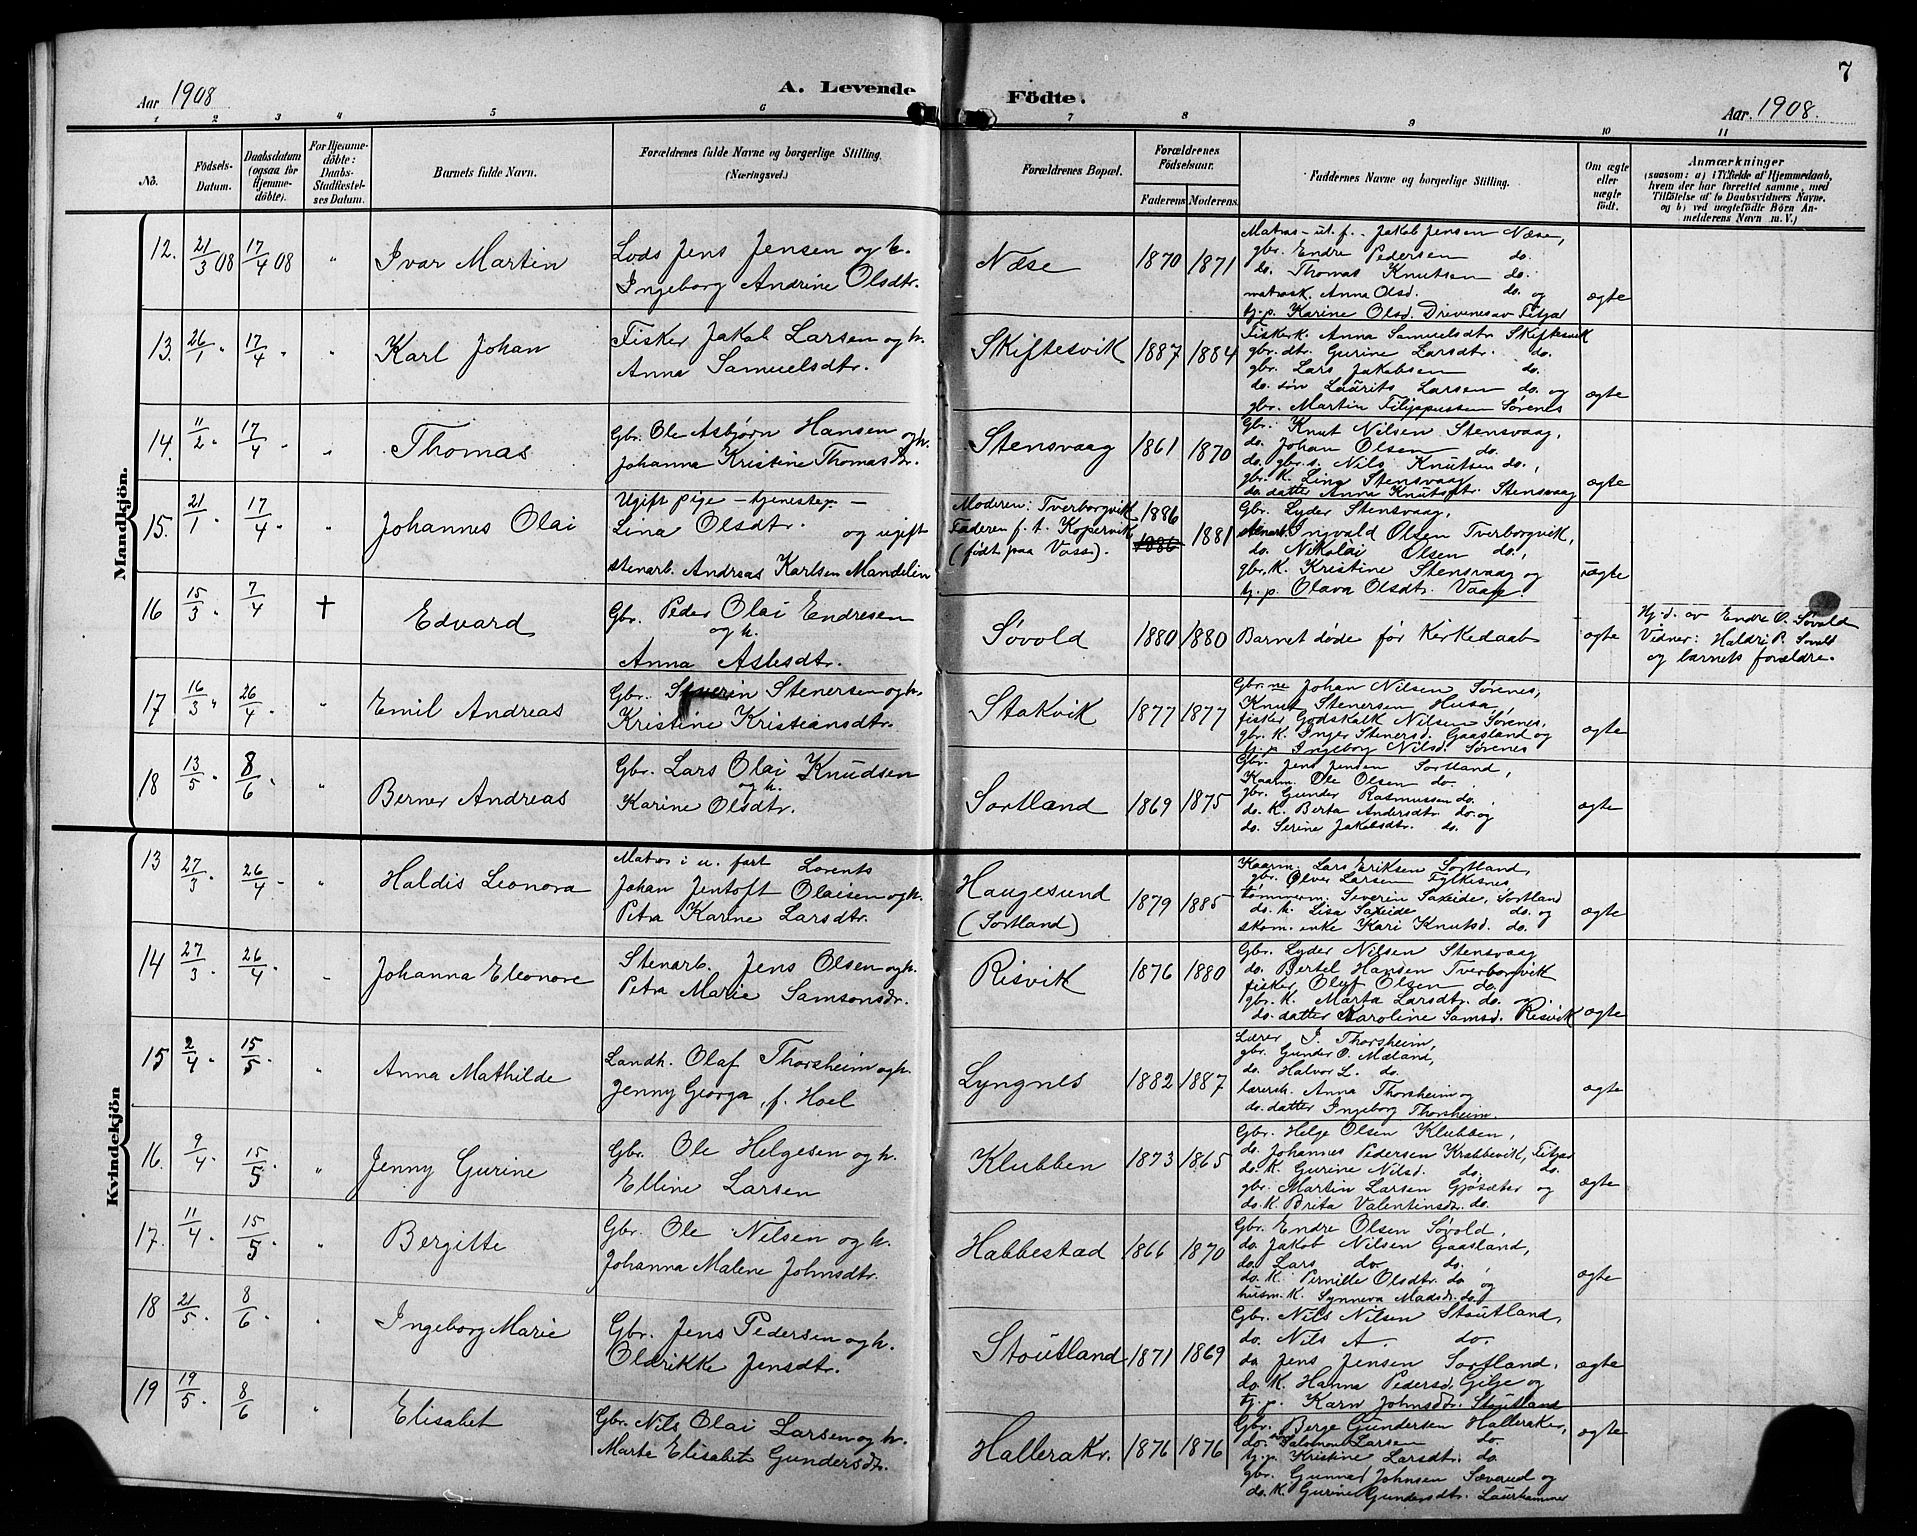 7
Aar 1908
A. Levende
Födte.
Aar 1908.
1 2 3 4 5 6 7 8 9 10 11
No.
Födsels-Datum.
Daabsdatum (ogsaa for Hjemmedöbte).
For Hjemmedöbte: Daabs-Stadfæstelses Datum.
Barnets fulde Navn.
Forældrenes fulde Navne og borgerlige Stilling. (Næringsvei.)
Forældrenes Bopæl.
Forældrenes Födselsaar.
Faderens Moderens.
Faddernes Navne og borgerlige Stilling.
Om ægte eller uægte födt.
Anmærkninger
(saasom: a) i Tilfælde af Hjemmedaab, hvem der har forrettet samme, med Tilföielse af to Daabsvidners Navne, og b) ved uægtefödte Börn Anmelderens Navn m. V.)
Mandkjön.
12. 21/3 08 17/4 08 " Ivar Martin
Lods Jens Jensen og h.
Ingeborg Andrine Olsdtr.
Næse 1870 1871
Matros - ut. f. - Jakob Jensen Næse,
gbr. Endre Pedersen do.
do. Thomas Knutsen do.
matrosk. Anna Olsd. do. og
tj. p. Karine Olsd. Drivenes av Fitjar
ægte
13. 26/1 " 17/4 " " Karl Johan
Fisker Jakob Larsen og h.
Anna Samuelsdtr.
Skiftesvik 1887 1884
Fiskerk. Anna Samuelsdtr Skiftesvik
gbr. dtr. Gurine Larsdtr. do.
gbr. Lars Jakobsen do.
do. søn Laurits Larsen do. og
gbr. Martin Filippussen Sørenes
ægte
14. 11/2 " 17/4 " " Thomas
Gbr. Ole Asbjørn Hansen og h.
Johanna Kristine Thomasdtr.
Stensvaag 1861 1870
Gbr. Knut Nilsen Stensvaag,
do. Johan Olsen do.
do. gbr. s. Nils Knutsen do.,
gbr. K. Lina Stensvaag
do. datter Anna Knutsdtr. Stensvaag
ægte
15. 21/1 17/4 " " Johannes Olai
Ugift pige - tjenestep. -
Lina Olsdtr. og ugift
stenarb. Andreas Karlsen Mandelin
Moderen: Tverborgvik
Faderen f. t. Kopervik
(født paa Voss).
1886 1886 1881
Gbr. Lyder Stensvaag,
stenarb. Ingvald Olsen Tverborgvik,
do. Nikolai Olsen do.,
gbr. K. Kristine Stensvaag og
tj. p. Olava Olsdtr. Vaage.
uægte
16 15/3 " 7/4 † Edvard
Gbr. Peder Olai Endresen
og h.
Anna Aslesdtr.
Søvold 1880 1880
Barnet døde før Kirkedaab
ægte
Hj. d. av Endre O. Søvold
Vidner: Haldri P. Søvold
og barnets forældre.
17 16/3 " 26/4 " " Emil Andreas
Gbr. Severin Stenersen og h.
Kristine Kristiansdtr.
Stakvik 1877 1877
Gbr. ne Johan Nilsen Sørenes,
Knut Stenersen Husa,
fisker Godskalk Nilsen Sørenes,
gbr. K. Inger Stenersd. Gaasland og
tj. p. Ingeborg Nilsd. Sørenes
ægte
18 13/5 " 8/6 " " Berner Andreas
Gbr. Lars Olai Knudsen
og h.
Karine Olsdtr.
Sortland 1869 1875
Gbr. Jens Jensen Sortland,
Kaarm. Ole Olsen do.
gbr. Gunder Rasmussen do.,
do. K. Berta Andersdtr. do. og
do. Serine Jakobsdtr. do.
ægte
Kvindekjön
13 27/3 " 26/4 " " Haldis Leonora
Matros i u. fart Lorents
Johan Jentoft Olaisen og h.
Petra Karine Larsdtr.
Haugesund
(Sortland)
1879 1885
Kaarm. Lars Eriksen Sortland,
gbr. Olver Larsen Fylkesnes
tømmerm. Severin Saxeide, Sortland
do. K. Lisa Saxeide do. og
skom. enke Kari Knutsd. do.
ægte
14 27/3 " 26/4 " Johanna Eleonore
Stenarb. Jens Olsen og h.
Petra Marie Samsonsdr.
Risvik 1876 1880
Gbr. Lyder Nilsen Stensvaag
do. Bertel Hansen Tverborgvik
fisker Oluf Olsen do.
gbr. K. Marta Larsdtr. do.
do. datter Karoline Samsd. Risvik
ægte
15 2/4 " 15/5 " " Anna Mathilde
Landh. Olaf Thorsheim og h.
Jenny Georga, f. Hoel
Lyngnes 1882 1887
Lærer J. Thorsheim,
gbr. Gunder O. Mæland,
do. Halvor L. do.
lærerk. Anna Thorsheim og
do. datter Ingeborg Thorsheim.
ægte
16. 9/4 " 15/5 " " Jenny Gurine
Gbr. Ole Helgesen og h.
Elline Larsen
Klubben 1873 1865
Gbr. Helge Olsen Klubben,
do. Johannes Pedersen Krabbevik, Fitjar
do. K. Gurine Nilsd. do. do.
gbr. Martin Larsen Gjøsæter og
do. K. Brita Valentinsdr. do.
ægte
17. 11/4 " 15/5 " " Bergitte
Gbr. Ole Nilsen og h.
Johanna Malene Johnsdtr.
Habbestad 1866 1870
Gbr. Endre Olsen Søvold,
do. Jakob Nilsen Gaasland,
do. Lars do. do.
do. K. Pernille Olsdtr. do. og
husm. K. Synneva Madsdr. do.
ægte
18 21/5 " 8/6 " " Ingeborg Marie
Gbr. Jens Pedersen og h.
Oldrikke Jensdtr.
Stoutland 1871 1869
Gbr. Nils Nilsen Stoutland,
do. Nils A. do.
do. Jens Jensen Sortland,
do. K. Hanna Pedersd. Gilje og
tj. p. Karn Johnsdtr. Stoutland
ægte
19 19/5 " 8/6 " Elisabet
Gbr. Nils Olai Larsen og h.
Marta Elisabet Gundersdtr.
Halleraker. 1876 1876
Gbr. Berge Gundersen Halleraker,
do. Salomon Larsen do.
tj. p. Kristine Larsdtr. do.
gbr. Gunnar Johnsen Sæverud og
do. K. Gurine Gundersdtr. Laurhammer
ægte